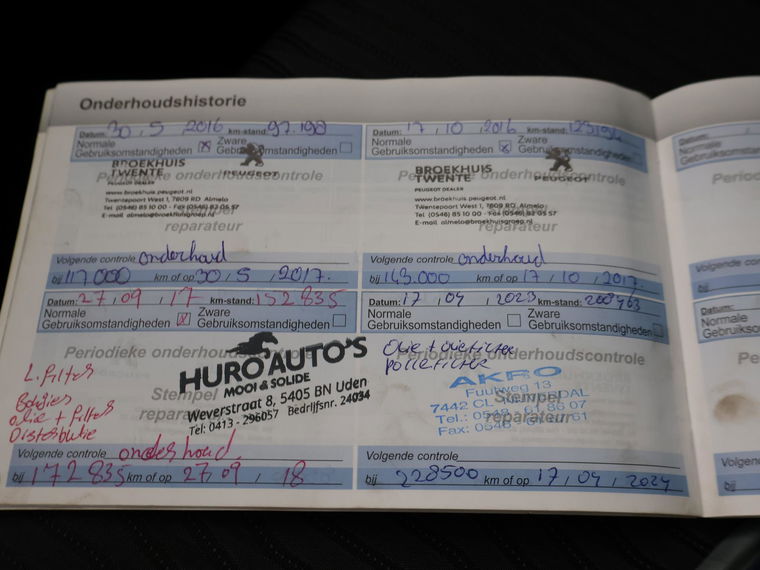 Onderhoudshistorie
Datum: 30 , 5 , 2016 km-stand: 97.198
Normale Gebruiksomstandigheden ☒ Zware Gebruiksomstandigheden ☐
BROEKHUIS
TWENTE PEUGEOT
PEUGEOT DEALER
Periodieke onderhoudscontrole
www.broekhuis.peugeot.nl
Twentepoort West 1, 7609 RD Almelo
Tel. (0546) 85 10 00 - Fax (0546) 82 05 57
E-mail almelo@broekhuisgroep.nl
Stempel
reparateur
Volgende controle onderhoud
bij 117000 km of op 30 , 5 , 2017.
Datum: 17 , 10 , 2016 km-stand:
Normale Gebruiksomstandigheden ☒ Zware Gebruiksomstandigheden ☐
BROEKHUIS
TWENTE PEUGEOT
PEUGEOT DEALER
Periodieke onderhoudscontrole
www.broekhuis.peugeot.nl
Twentepoort West 1, 7609 RD Almelo
Tel. (0546) 85 10 00 - Fax (0546) 82 05 57
E-mail almelo@broekhuisgroep.nl
Stempel
reparateur
Volgende controle onderhoud
bij 143.000 km of op 17 , 10 , 2017.
Datum: 27 , 09 , 17 km-stand: 152835
Normale Gebruiksomstandigheden ☒ Zware Gebruiksomstandigheden ☐
Periodieke onderhoudscontrole
HURO AUTO'S
MOOI & SOLIDE
Weverstraat 8, 5405 BN Uden
Tel: 0413 - 296057 Bedrijfsnr. 24034
L. filter
Bougies
olie + filter
Distributie
Stempel
reparateur
Volgende controle onderhoud
bij 172835 km of op 27 , 09 , 18
Datum: 17 , 04 , 2023 km-stand:
Normale Gebruiksomstandigheden ☐ Zware Gebruiksomstandigheden ☐
Olie + oliefilter
pollefilter
Periodieke onderhoudscontrole
AKRO
Fuutweg 13
7442 CL
Tel.: 0548
Fax: 0548
Stempel
reparateur
Volgende controle
bij 228500 km of op 17 , 04 , 2024
Datum:
Normale
Gebruiksomst
Periodi
Volgende co
bij
Datum:
Normale
Gebruiksom
Period
Volgen
bij